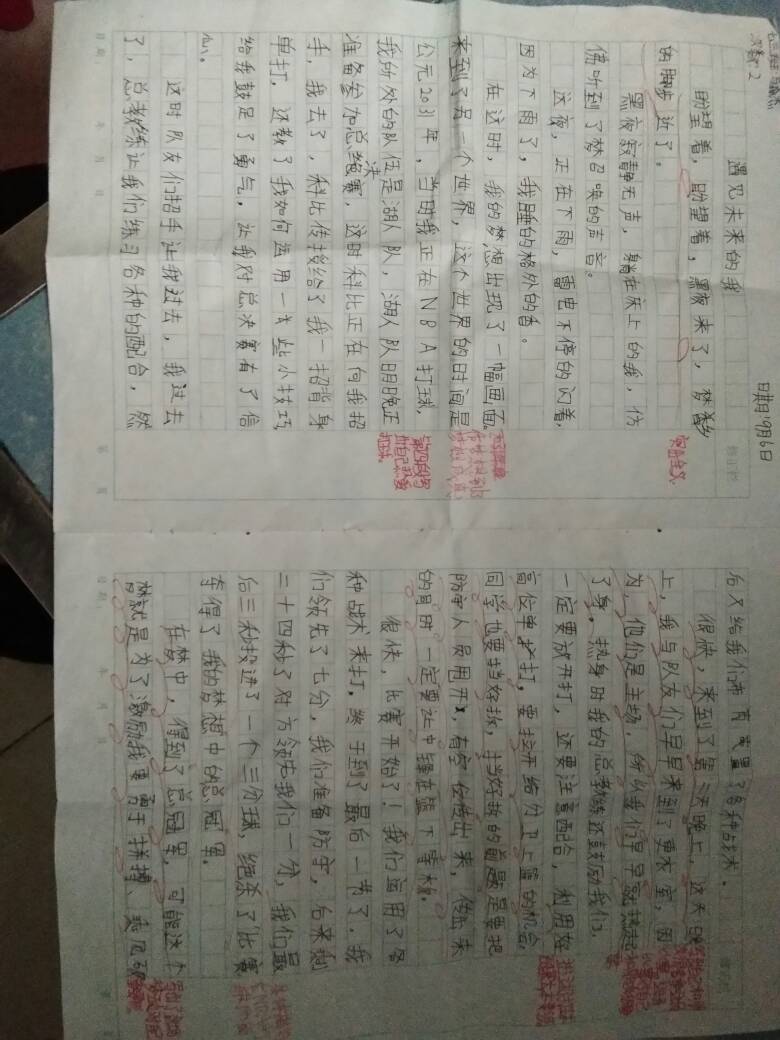 次数:2
日期:9月6日
遇见未来的我
盼望着,盼望着,黑夜来了,梦乡
的脚步近了。
黑夜寂静无声,躺在床上的我,仿
佛听到了梦召唤的声音。
这夜,正在下雨,雷电不停的闪着,
因为下雨了,我睡的格外的香。
在这时,我的梦想出现了一幅画面。
来到了另一个世界,这个世界的时间是
公元2031年,当时我正在NBA打球,
我所外的队伍是湖人队,湖人队明晚正
准备参加总决赛,这时科比正在向我招
手,我去了,科比传授给了我一招背身
单打,还教了我如何运用一些小技巧
给我鼓足了勇气,让我对总决赛有了信
心。
这时队友们招手让我过去,我过去
了,总教练让我们练习各种的配合,然
后又给我们布置了各种战术。
很快,来到了第二天晚上,这天晚
上,我与队友们早早来到了更衣室,因
为,他们是主场,所以我们早早就热起
了身,热身时我的总教练还鼓励我们,
一定要放开打,还要注意配合,利用好
高位单打,要拉开给分卫上篮的机会,
同学也要挡好拆,挡好拆的前提是要把
防守人员甩开,有空位传出来,传出来
的同时一定要让中锋在篮下掌握。
很快,比赛开始了!我们运用了各
种战术来打,终于到了最后一节了,我
们领先了七分,我们准备防守,后来剩
二十四秒了对方领先我们一分,我们最
后三秒投进了一个三分球,绝杀了比赛
夺得了我的梦想中的总冠军。
在梦中,得到了总冠军,可能这个
梦就是为了激励我要勇于拼搏、乘风破